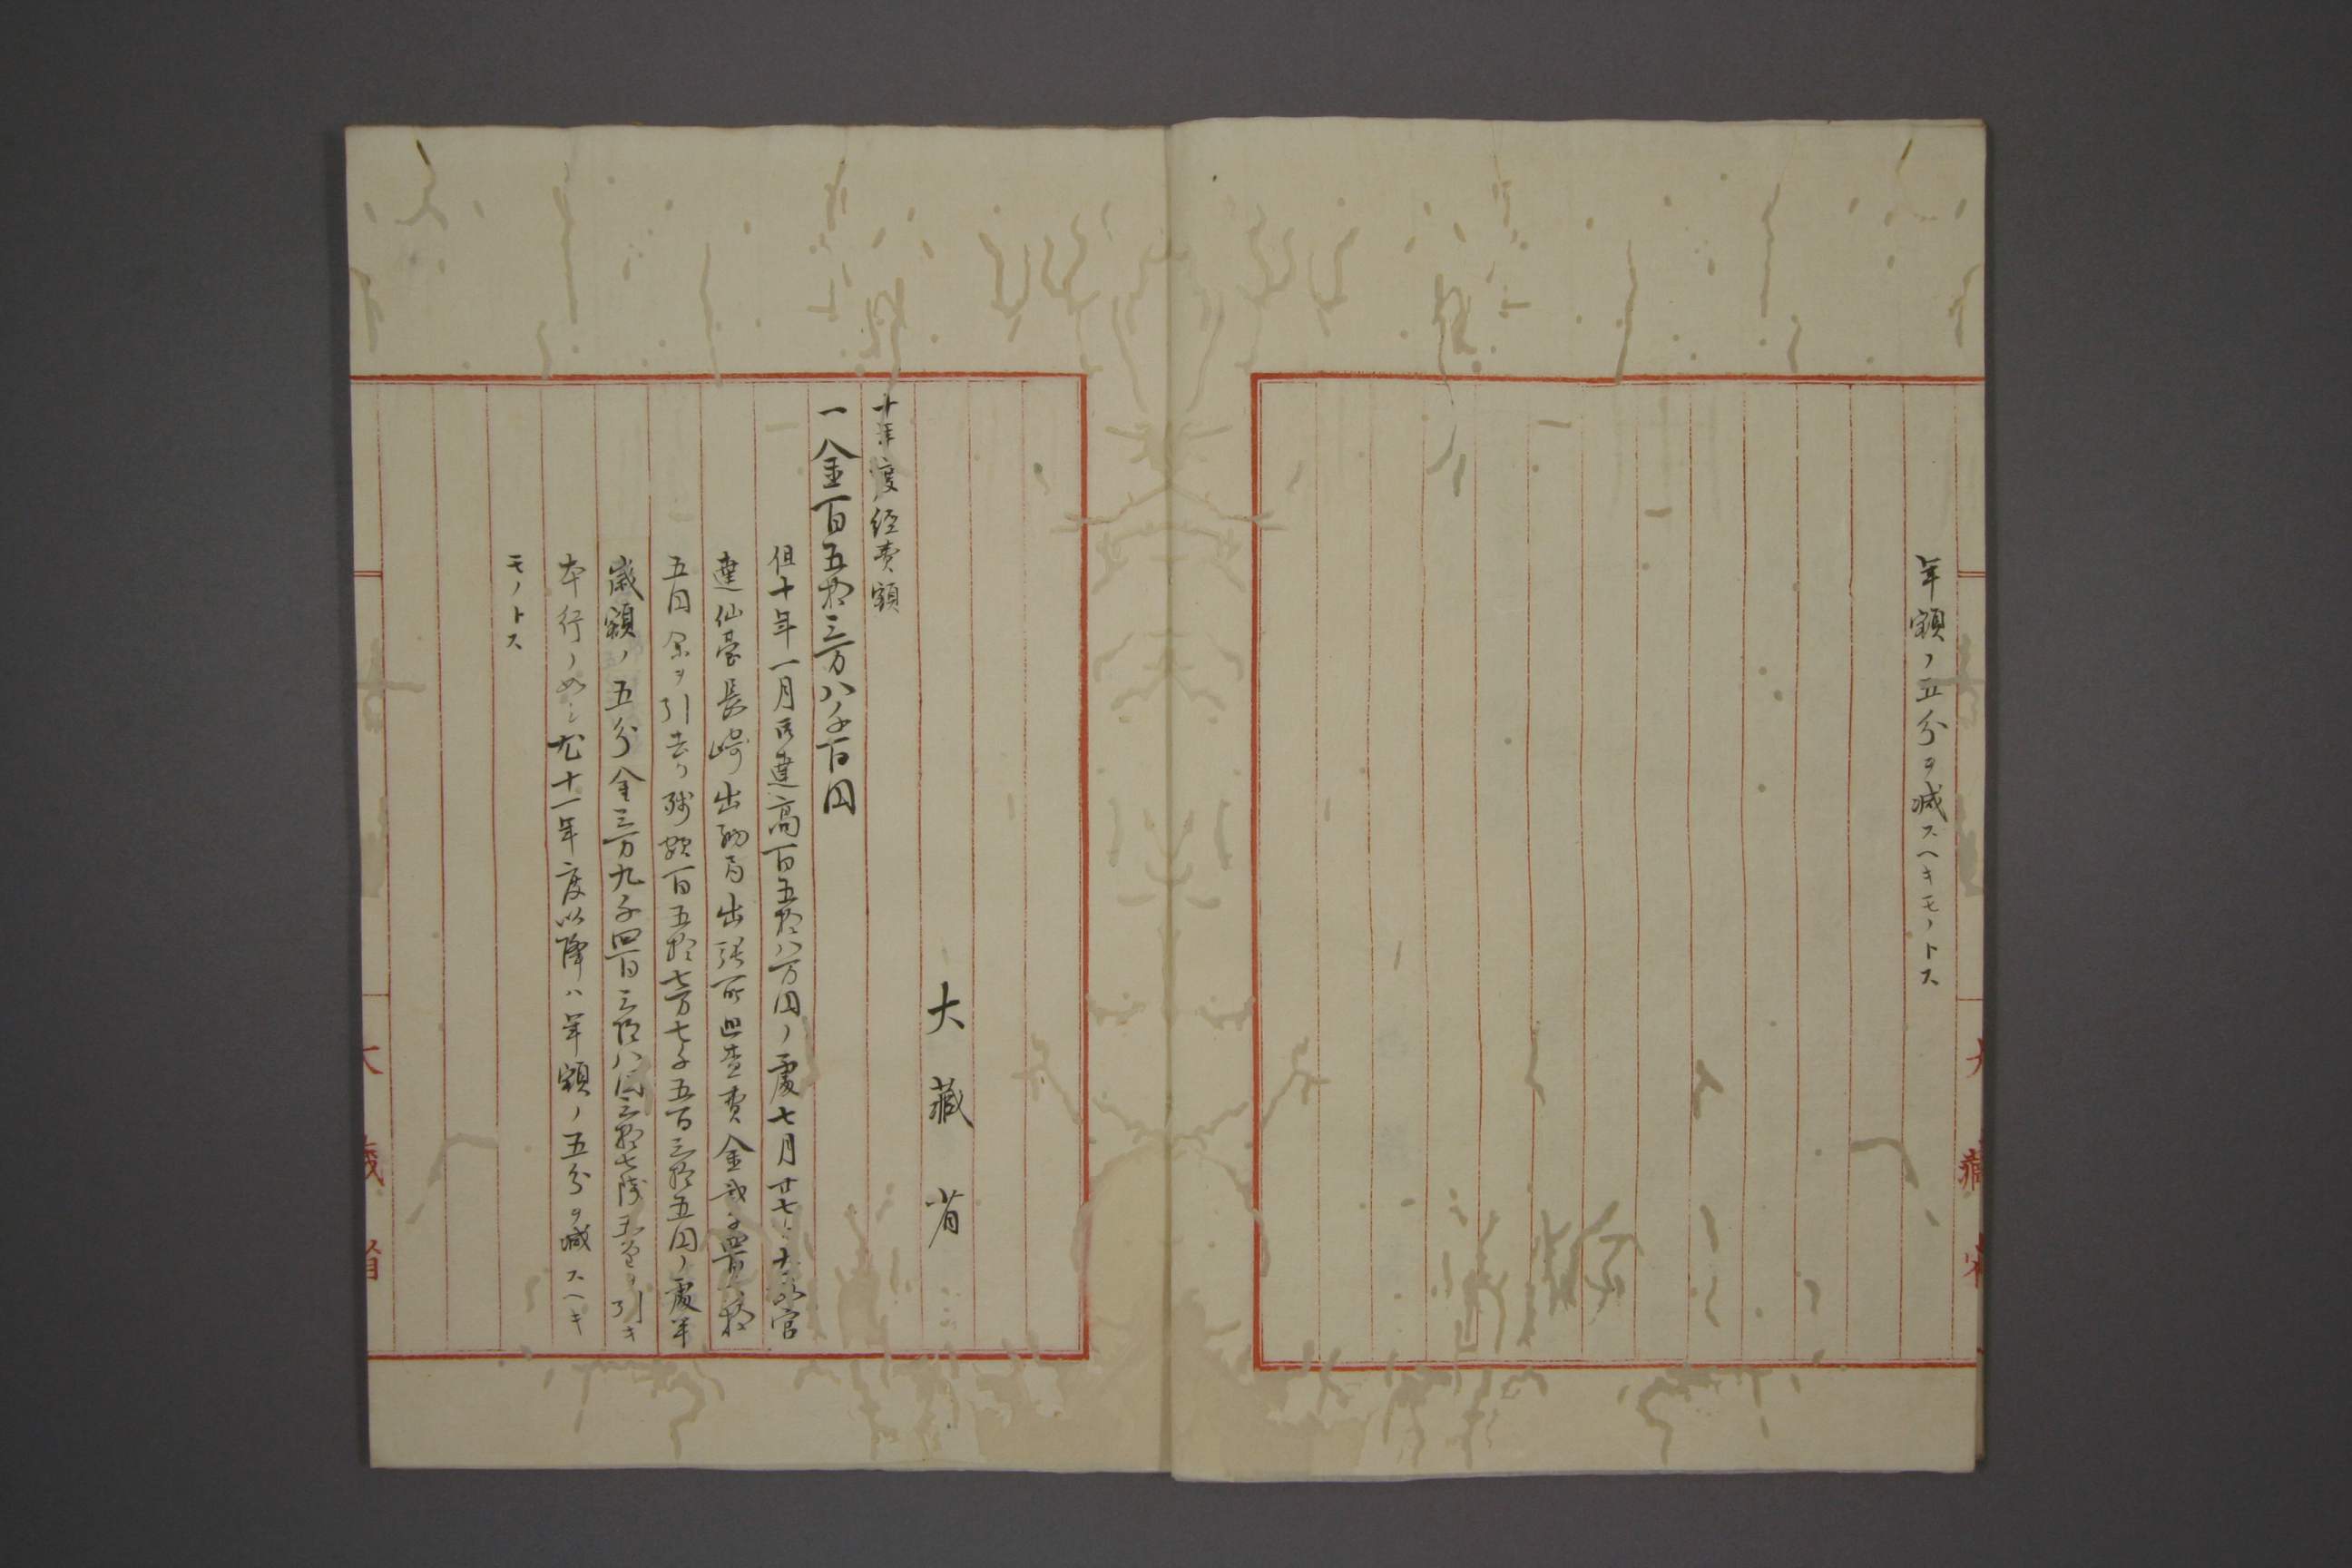 年額ノ五分ヲ減スヘキモノトス
大藏省
大藏省
十年度経費額
一金百五拾三万八千百円
但十年一月御達高百五拾八万円ノ處七月廿七日太政官
達仙臺長崎出納局出張所巡査費金貳千四百六拾
五円余ヲ引去リ残額百五拾七万七千五百三拾五円ノ處半
歳額ノ五分金三万九千四百三拾八円三拾七銭五厘ヲ引キ
本行ノ如シ尤十一年度以降ハ年額ノ五分ヲ減スヘキ
モノトス
大藏省